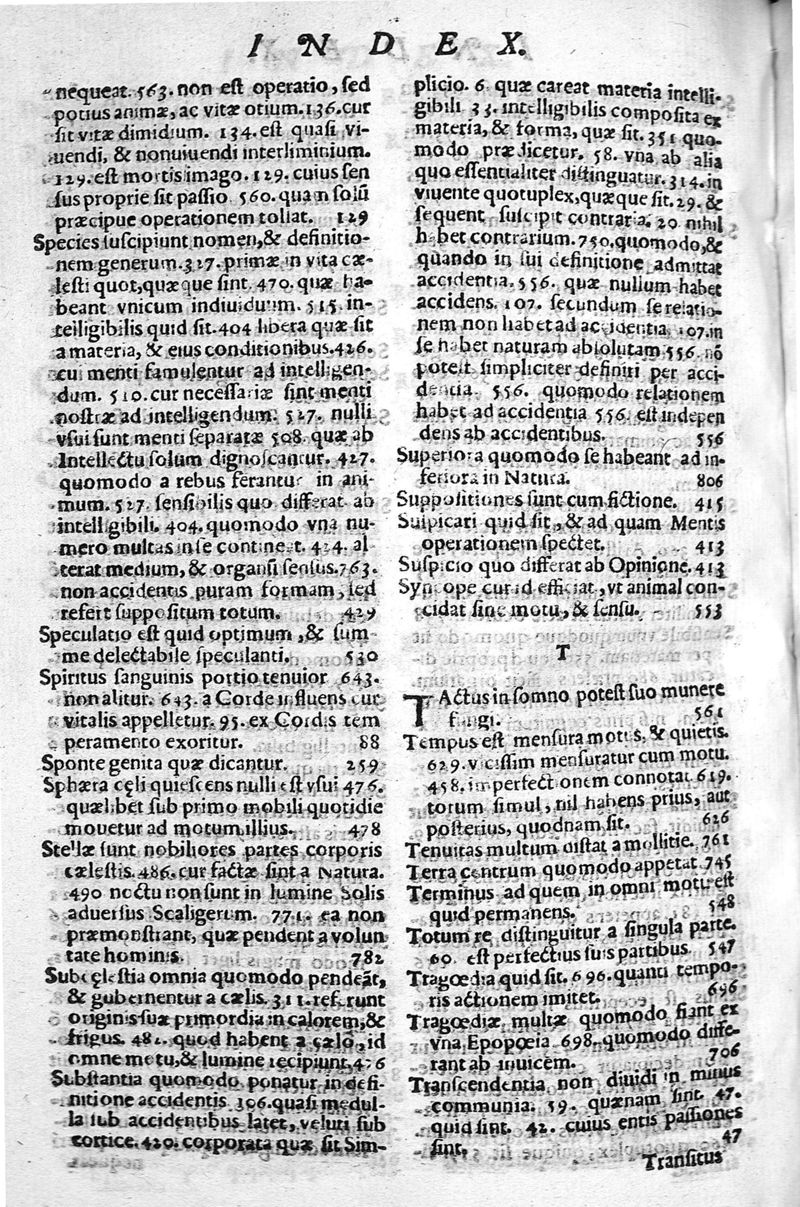 INDEX.
nequeat. 563. non est operatio, sed
potius animæ, ac vitæ otium. 136. cur
sit vitæ dimidium. 134. est quasi vi-
uendi, & nonuiuendi interliminium.
129. est mortis imago. 129. cuius sen
sus proprie sit passio 560. quam solũ
præcipue operationem tollat. 129
Species suscipiunt nomen, & definitio-
nem generum. 327. primæ in vita cæ-
lesti quot, quæque sint. 470. quæ ha-
beant vnicum indiuiduum. 515. in-
telligibilis quid sit. 404 libera quæ sit
a materia, & eius conditionibus. 426.
cui menti famulentur ad intelligen-
dum. 510. cur necessariæ sint menti
nostræ ad intelligendum. 527. nulli
vsui sunt menti separatæ 508. quæ ab
Intellectu solum dignoscantur. 427.
quomodo a rebus ferantur in ani-
mum. 527. sensibilis quo differat ab
intelligibili. 404. quomodo vna nu-
mero multas in se contineat. 424. al
terat medium, & organũ sensus. 763.
non accidentis puram formam, sed
refert suppositum totum. 429
Speculatio est quid optimum, & sum
me delectabile speculanti. 530
Spiritus sanguinis portio tenuior 643.
non alitur. 643. a Corde influens cur
vitalis appelletur. 95. ex Cordis tem
peramento exoritur. 88
Sponte genita quæ dicantur. 259
Sphæra cęli quiescens nulli est vsui 476.
quælibet sub primo mobili quotidie
mouetur ad motum illius. 478
Stellæ sunt nobiliores partes corporis
cælestis. 486. cur factæ sint a Natura.
490 noctu non sunt in lumine Solis
aduersus Scaligerum. 771. ea non
præmonstrant, quæ pendent a volun
tate hominis. 782
Subcęlestia omnia quomodo pendeãt,
& gubernentur a cælis. 311. referunt
originis suæ primordia in calorem, &
frigus. 481. quod habent a cælo, id
omne motu, & lumine recipiunt. 476
Substantia quomodo ponatur in defi-
nitione accidentis 306. quasi medul-
la sub accidentibus latet, veluti sub
cortice. 420. corporata quæ sit Sim-
plicio. 6. quæ careat materia intelli-
gibili 33. intelligibilis composita ex
materia, & forma, quæ sit. 351 quo-
modo prædicetur. 58. vna ab alia
quo essentialiter distinguatur. 314. in
viuente quotuplex, quæque sit. 29. &
sequent suscipit contraria. 20 nihil
habet contrarium. 750. quomodo, &
quando in sui definitione admittat
accidentia. 556. quæ nullum habet
accidens. 107. secundum se relatio-
nem non habet ad accidentia. 107. in
se habet naturam absolutam 556. nõ
potest simpliciter definiri per acci-
dentia. 556. quomodo relationem
habet ad accidentia 556. est indepen
dens ab accidentibus. 556
Superiora quomodo se habeant ad in-
feriora in Natura. 806
Suppositiones sunt cum fictione. 415
Suspicari quid sit, & ad quam Mentis
operationem spectet. 413
Suspicio quo differat ab Opinione. 413
Syncope cur id efficiat, vt animal con-
cidat sine motu, & sensu. 553
T
TActus in somno potest suo munere
fungi. 561
Tempus est mensura motus, & quietis.
629. vicissim mensuratur cum motu.
458. imperfectionem connotat 619.
totorum simul, nil habens prius, aut
posterius, quodnam sit. 626
Tenuitas multum distat a mollitie. 761
Terra centrum quomodo appetat 745
Terminus ad quem, in omni motu est
quid permanens. 548
Totum re distinguitur a singula parte.
60. est perfectius suis partibus. 547
Tragœdia quid sit. 696. quanti tempo-
ris actionem imitet. 696
Tragœdiæ multæ quomodo fiant ex
vna Epopœia 698. quomodo diffe-
rant ab inuicem. 706
Transcendentia non diuidi in minus
communia. 39. quænam sint 47.
quid sint. 42. cuius entis passiones
sint. 47
Transitus